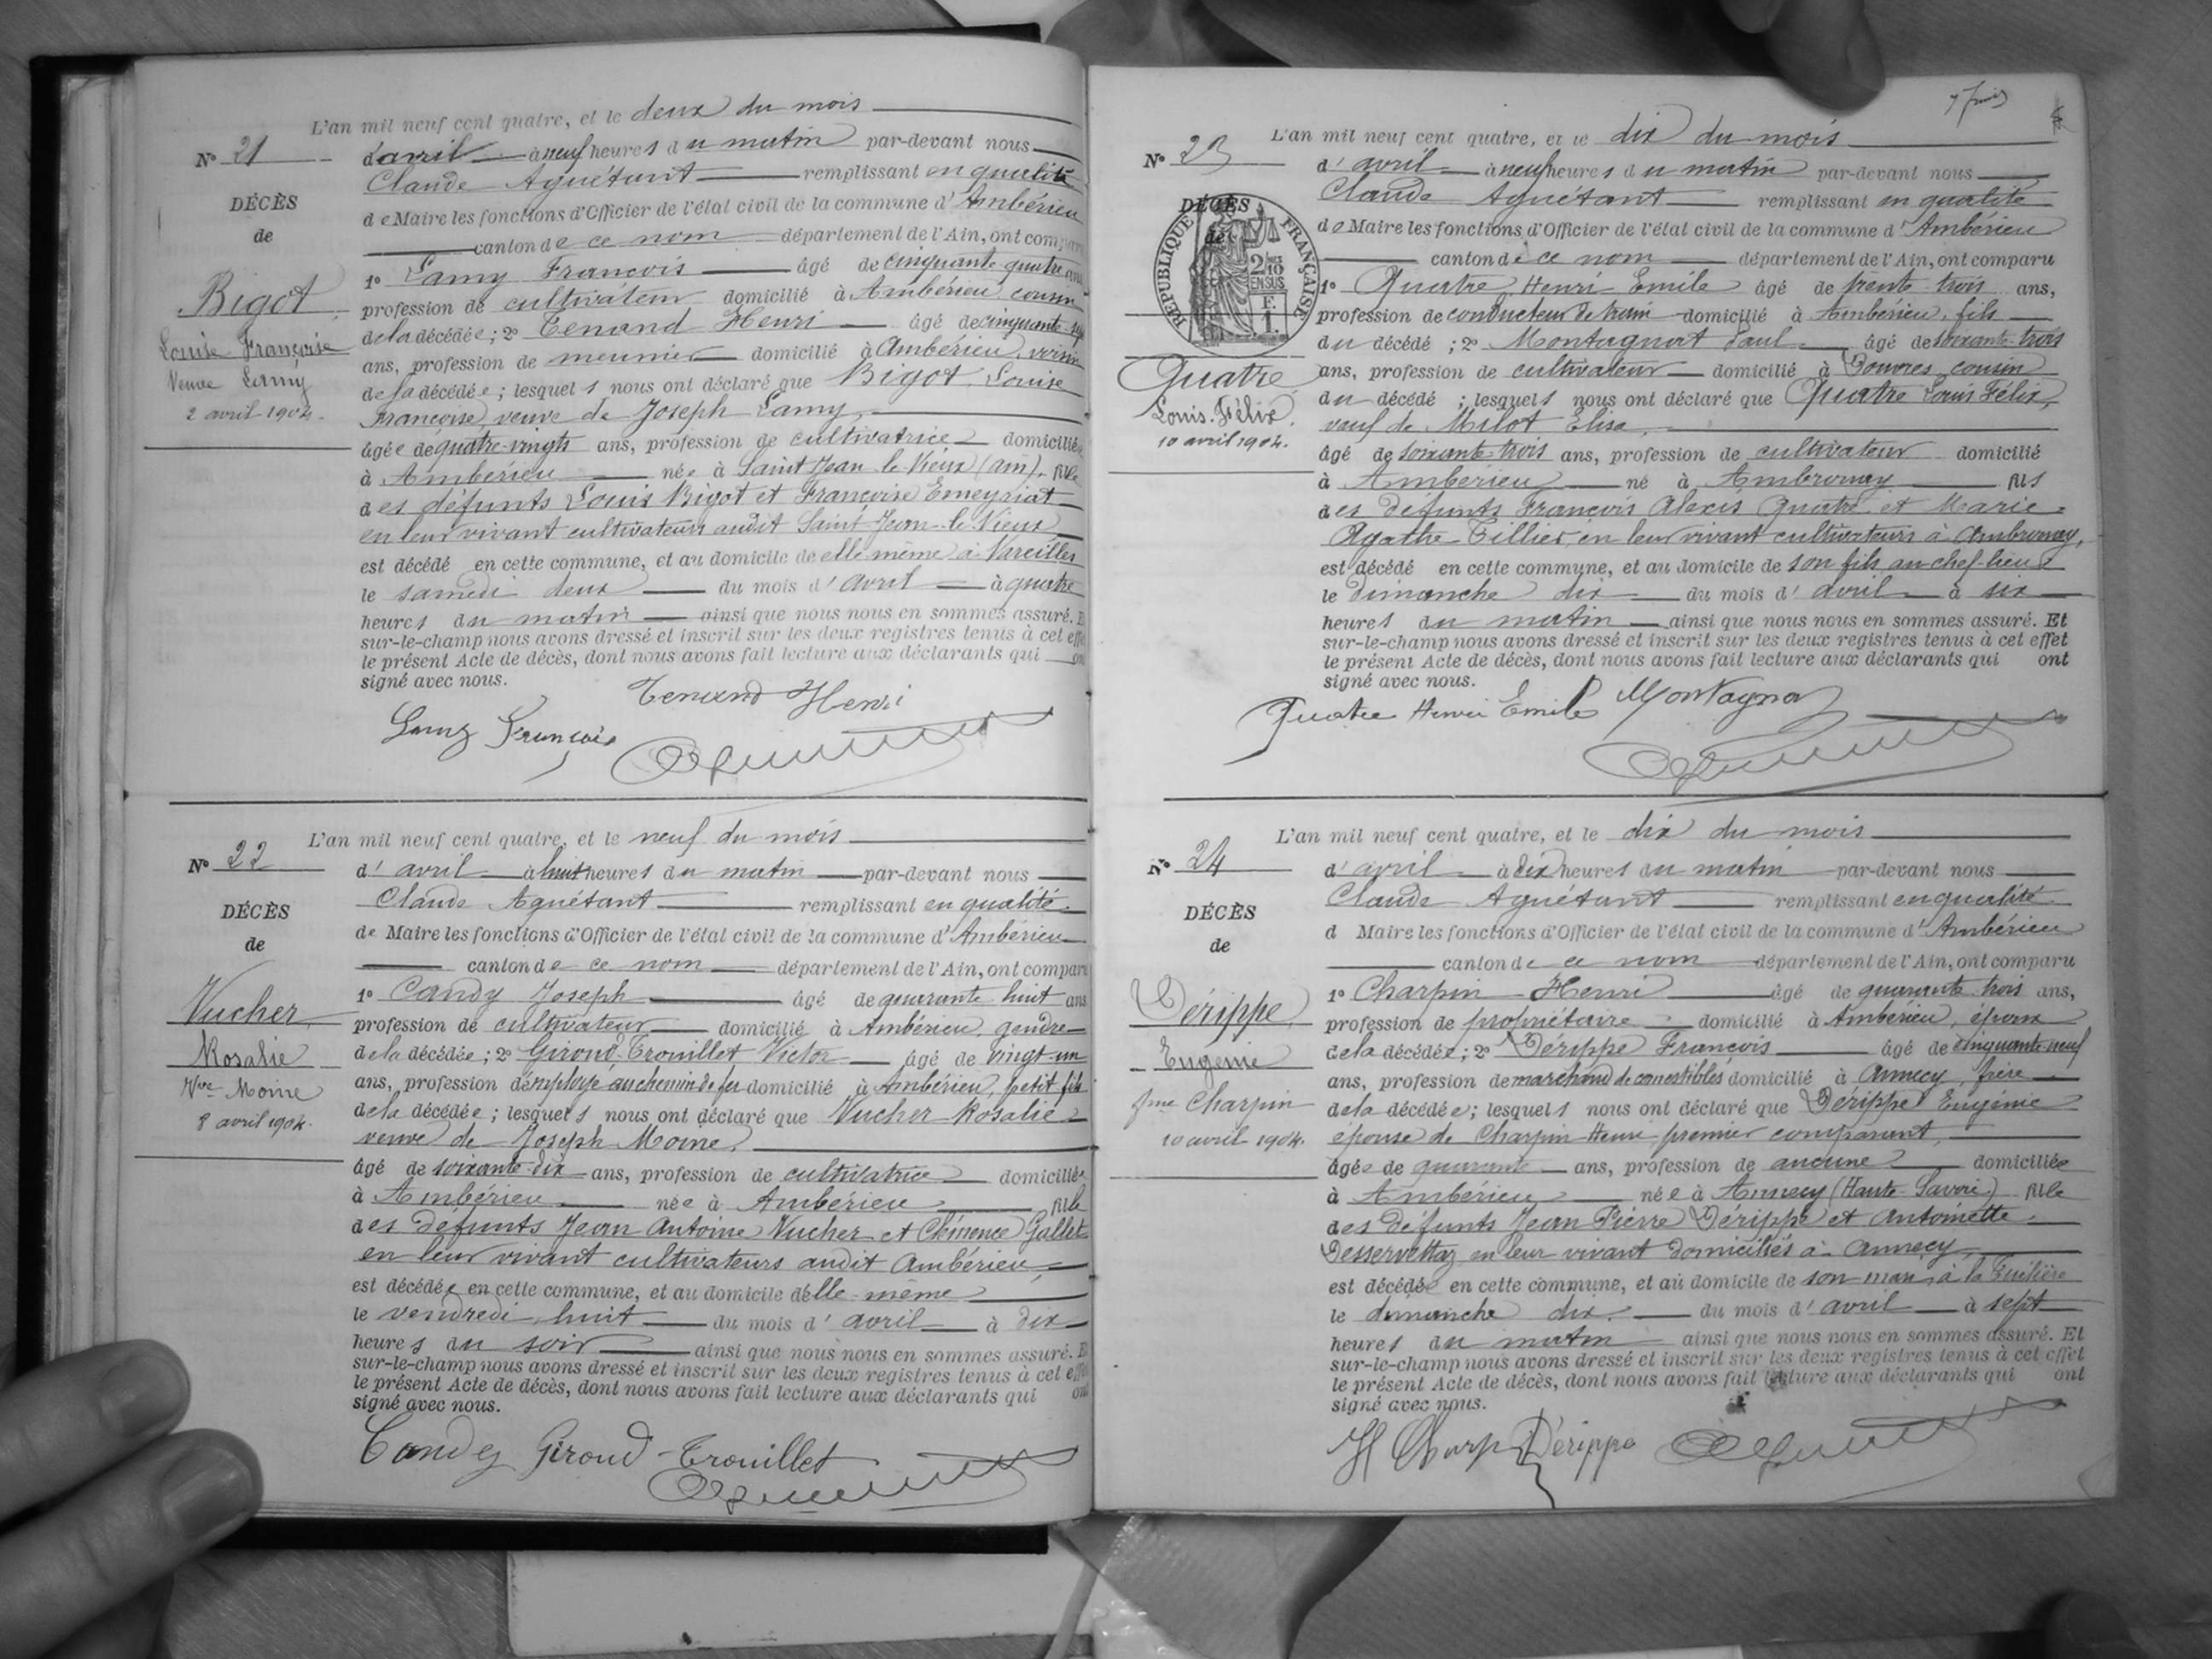 L'an mil neuf cent quatre, et le deux du mois
N° 21
d'avril à neuf heures du matin par-devant nous
Claude Aguétant remplissant en qualité
DÉCÈS
de Maire les fonctions d'Officier de l'état civil de la commune d'Ambérieu
de
canton de ce nom département de l'Ain, ont comparu
1° Lamy François âgé de cinquante quatre ans
Bigot
profession de cultivateur domicilié à Ambérieu cousin
de la décédée; 2° Tenand Henri âgé de cinquante-sept
Louise Françoise
ans, profession de meunier domicilié à Ambérieu, voisin
Veuve Lamy
de la décédée; lesquels nous ont déclaré que Bigot Louise
2 avril 1904.
Françoise, veuve de Joseph Lamy,
âgée de quatre-vingts ans, profession de cultivatrice domiciliée
à Ambérieu née à Saint Jean le Vieux (Ain), fille
des défunts Louis Bigot et Françoise Emeyriat
en leur vivant cultivateurs audit Saint Jean-le-Vieux
est décédé en cette commune, et au domicile de elle même à Vareilles
le samedi deux du mois d'avril à quatre
heures du matin ainsi que nous nous en sommes assuré. E
sur-le-champ nous avons dressé et inscrit sur les deux registres tenus à cet effe
le présent Acte de décès, dont nous avons fait lecture aux déclarants qui ont
signé avec nous.
Tenand Henri
Lamy François
L'an mil neuf cent quatre, et le neuf du mois
N° 22
d'avril à huit heures du matin par-devant nous
Claude Aguétant remplissant en qualité
DÉCÈS
de Maire les fonctions d'Officier de l'état civil de la commune d'Ambérieu
de
canton de ce nom département de l'Ain, ont comparu
1° Candy Joseph âgé de quarante huit ans
Vucher
profession de cultivateur domicilié à Ambérieu, gendre
de la décédée; 2° Giroud-Trouillet Victor âgé de vingt-un
Rosalie
ans, profession d'employé au chemin de fer domicilié à Ambérieu, petit fils
Vve Moine
de la décédée; lesquels nous ont déclaré que Vucher Rosalie
8 avril 1904.
veuve de Joseph Moine,
âgé de soixante-dix ans, profession de cultivatrice domiciliée
à Ambérieu née à Ambérieu fille
des défunts Jean Antoine Vucher et Clémence Gallet
en leur vivant cultivateurs audit Ambérieu,
est décédée en cette commune, et au domicile d'elle-même
le vendredi huit du mois d'avril à dix
heures du soir ainsi que nous nous en sommes assuré. E
sur-le-champ nous avons dressé et inscrit sur les deux registres tenus à cet effe
le présent Acte de décès, dont nous avons fait lecture aux déclarants qui ont
signé avec nous.
Candy Giroud-Trouillet
L'an mil neuf cent quatre, et le dix du mois
N° 23
d'avril à neuf heures du matin par-devant nous
Claude Aguétant remplissant en qualité
DÉCÈS
de Maire les fonctions d'Officier de l'état civil de la commune d'Ambérieu
de
RÉPUBLIQUE FRANÇAISE
2/10 EN SUS
F. 1.
canton de ce nom département de l'Ain, ont comparu
1° Quatre Henri Emile âgé de trente-trois ans,
profession de conducteur de train domicilié à Ambérieu, fils
du décédé; 2° Montagnat Paul âgé de soixante-trois
Quatre
ans, profession de cultivateur domicilié à Douvres cousin
Louis-Félix.
du décédé; lesquels nous ont déclaré que Quatre Louis Félix,
10 avril 1904.
veuf de Milot Elisa,
âgé de soixante-trois ans, profession de cultivateur domicilié
à Ambérieu né à Ambronay fils
des défunts François Alexis Quatre et Marie-
Agathe Tillier, en leur vivant cultivateurs à Ambronay,
est décédé en cette commune, et au domicile de son fils au chef-lieu
le dimanche dix du mois d'avril à six
heures du matin ainsi que nous nous en sommes assuré. Et
sur-le-champ nous avons dressé et inscrit sur les deux registres tenus à cet effet
le présent Acte de décès, dont nous avons fait lecture aux déclarants qui ont
signé avec nous.
Quatre Henri Emile Montagnat
L'an mil neuf cent quatre, et le dix du mois
N° 24
d'avril à dix heures du matin par-devant nous
Claude Aguétant remplissant en qualité
DÉCÈS
d Maire les fonctions d'Officier de l'état civil de la commune d'Ambérieu
de
canton de ce nom département de l'Ain, ont comparu
1° Charpin Henri âgé de quarante-trois ans,
Dérippe
profession de propriétaire domicilié à Ambérieu, époux
Eugénie
de la décédée; 2° Dérippe François âgé de cinquante neuf
ans, profession de marchand de comestibles domicilié à Annecy, frère
fme Charpin
de la décédée; lesquels nous ont déclaré que Dérippe Eugénie
10 avril 1904.
épouse de Charpin Henri premier comparant,
âgée de quarante ans, profession de aucune domiciliée
à Ambérieu née à Annecy (Haute-Savoie) fille
des défunts Jean Pierre Dérippe et Antoinette
Desservettaz en leur vivant domiciliés à Annecy,
est décédée en cette commune, et au domicile de son mari, à la Tuilière
le dimanche dix du mois d'avril à sept
heures du matin ainsi que nous nous en sommes assuré. Et
sur-le-champ nous avons dressé et inscrit sur les deux registres tenus à cet effet
le présent Acte de décès, dont nous avons fait lecture aux déclarants qui ont
signé avec nous.
H Charpin Dérippe